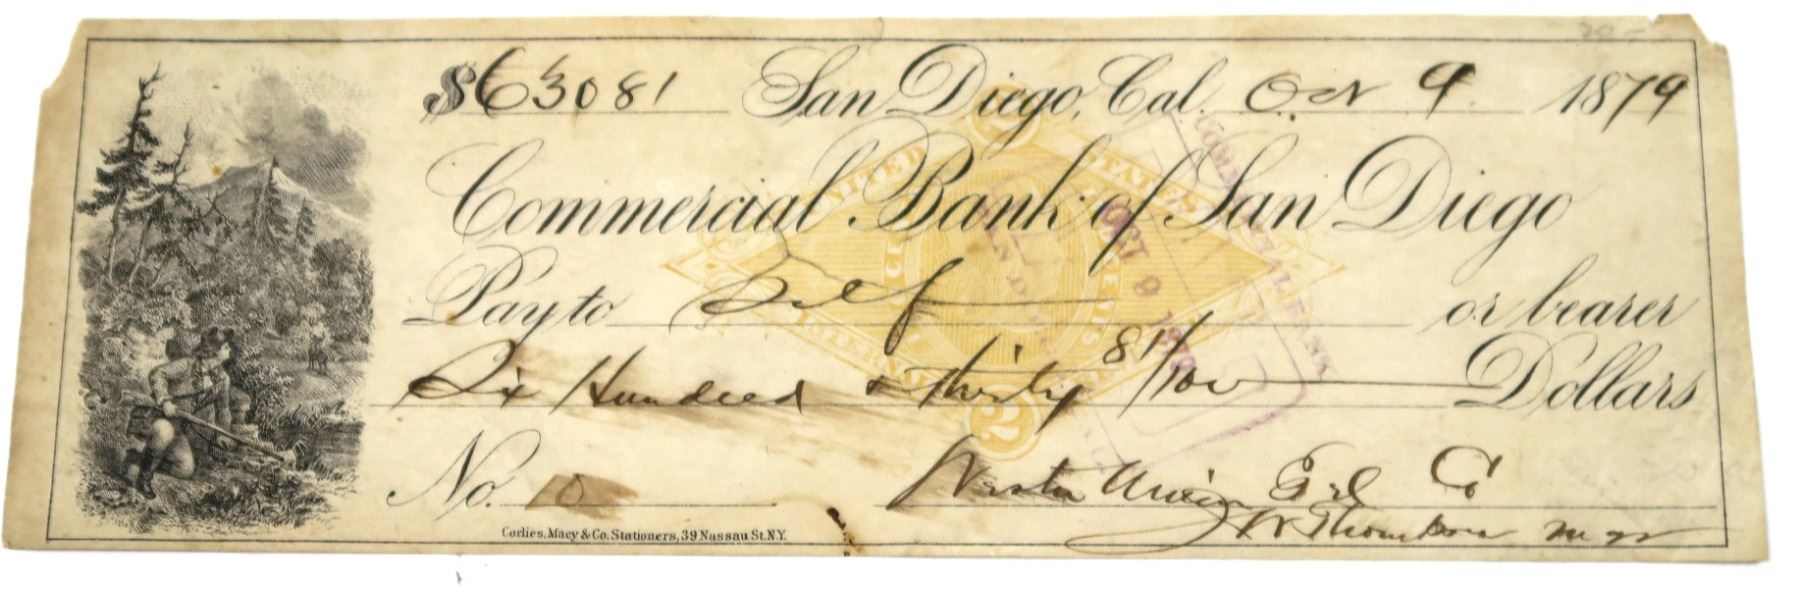 $630 81 San Diego, Cal. Oct 9 1879
Commercial Bank of San Diego
UNITED STATES
Pay to Self or bearer
Six Hundred & thirty 81/100 Dollars
COMMERCIAL BANK
OCT 9 1879
SAN DIEGO
2
No. 0
Western Union Tel Co
Thompson Mgr
Corlies, Macy & Co. Stationers, 39 Nassau St. N.Y.